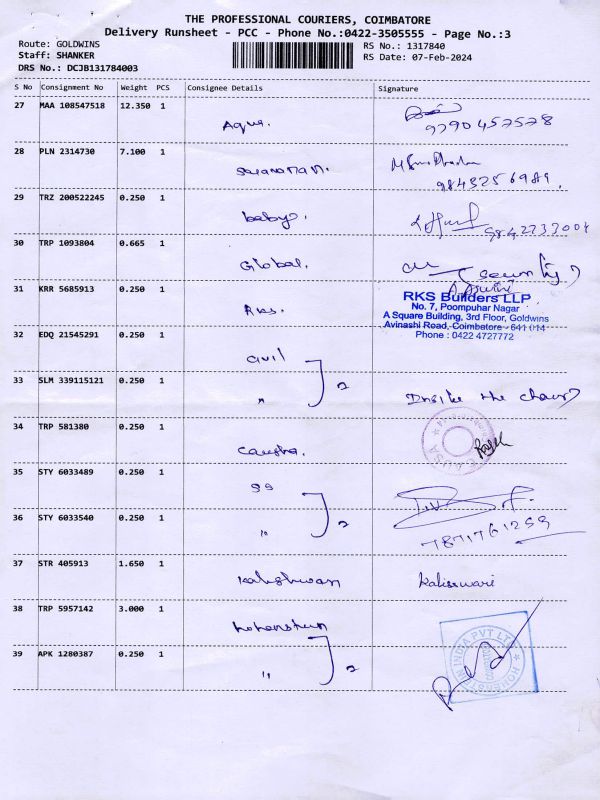 THE PROFESSIONAL COURIERS, COIMBATORE
Delivery Runsheet - PCC - Phone No.:0422-3505555 - Page No.:3
Route: GOLDWINS
Staff: SHANKER
DRS No.: DCJB131784003
RS No.: 1317840
RS Date: 07-Feb-2024
S No Consignment No Weight PCS Consignee Details Signature
27 MAA 108547518 12.350 1
Aqua.
9790457578
28 PLN 2314730 7.100 1
Saravanan.
9843256989.
29 TRZ 200522245 0.250 1
baby.
9842733004
30 TRP 1093804 0.665 1
Global.
(Security)
31 KRR 5685913 0.250 1
RKS.
RKS Builders LLP
No. 7, Poompuhar Nagar
A Square Building, 3rd Floor, Goldwins
Avinashi Road, Coimbatore - 641 014
Phone : 0422 4727772
32 EDQ 21545291 0.250 1
Civil
33 SLM 339115121 0.250 1
" 2
Inside the
34 TRP 581380 0.250 1
Causa.
CAUSA
35 STY 6033489 0.250 1
SS
36 STY 6033540 0.250 1
" 2
7871761259
37 STR 405913 1.650 1
Kaliswari
38 TRP 5957142 3.000 1
Hohenstein
39 APK 1280387 0.250 1
" 2
HOHENSTEIN INDIA PVT LTD